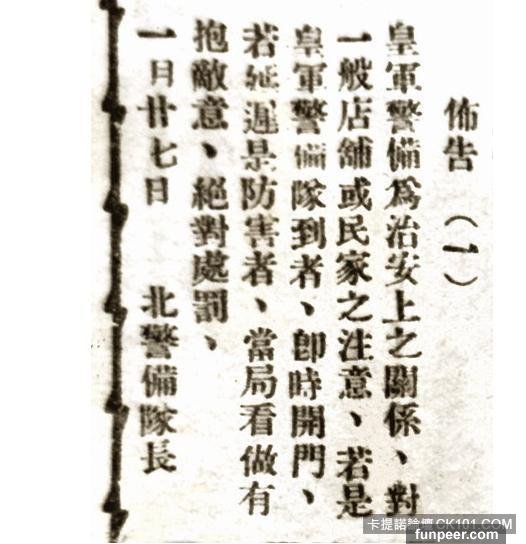 佈告（一）
皇軍警備爲治安上之關係、對
一般店舖或民家之注意、若是
皇軍警備隊到者、卽時開門、
若延遲是防害者、當局看做有
抱敵意、絕對處罰、
一日廿七日　北警備隊長
卡提諾論壇 CK101.COM
funpeer.com